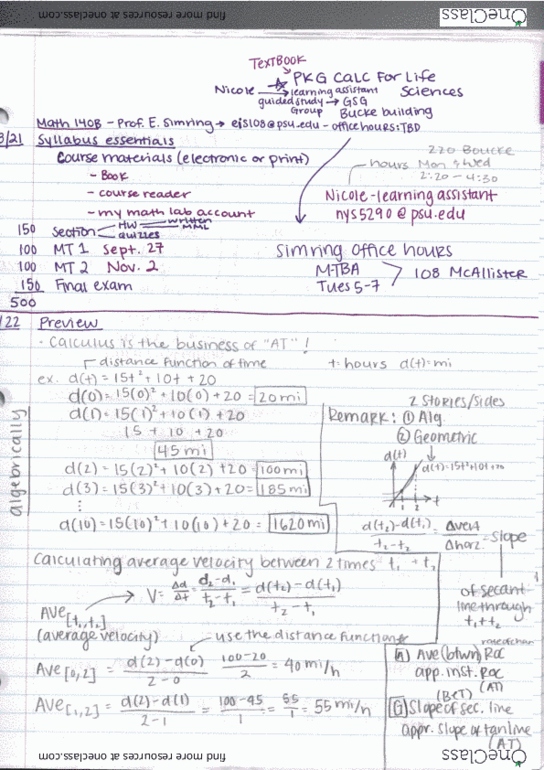 find more resources at oneclass.com
OneClass
TEXTBOOK
PKG CALC FOR LIFE
Nicole → learning assistant SCIENCES
guided study → GSG
Group Bucke building
Math 140B - Prof. E. Simring → ejs108@psu.edu - office hours: TBD
8/21 Syllabus essentials
220 Boucke
Course materials (electronic or print)
hours Mon & Wed
2:20 - 4:30
- Book
- course reader
Nicole - learning assistant
- my math lab account
nys5290@psu.edu
150 Section HW written MML
quizzes
100 MT 1 Sept. 27
Simring office hours
100 MT 2 Nov. 2
M-TBA
108 McAllister
150 Final exam
Tues 5-7
500
/22 Preview
- Calculus is the business of "AT"!
distance function of time t=hours d(t)=mi
ex. d(t) = 15t² + 10t + 20
d(0) = 15(0)² + 10(0) + 20 = 20 mi
2 Stories/Sides
d(1) = 15(1)² + 10(1) + 20
Remark: ① Alg
15 + 10 + 20
② Geometric
45 mi
d(t)
d(t)=15t²+10t+20
algebrically
d(2) = 15(2)² + 10(2) + 20 = 100 mi
d(3) = 15(3)² + 10(3) + 20 = 185 mi
1 2 t
⋮
d(10) = 15(10)² + 10(10) + 20 = 1620 mi
d(t₂)-d(t₁) / t₂-t₁ = Δvert / Δhorz = slope
Calculating average velocity between 2 times t₁ + t₂
of secant
line through
t₁ + t₂
V = Δd/Δt = d₂-d₁ / t₂-t₁ = d(t₂)-d(t₁) / t₂-t₁
AVE[t₁,t₂]
(average velocity) use the distance function
AVE[0,2] = d(2)-d(0) / 2-0 = 100-20 / 2 = 40 mi/h
AVE[1,2] = d(2)-d(1) / 2-1 = 100-45 / 1 = 55/1 = 55 mi/h
[A] Ave (btwn) Roc
app. inst. Roc
(AT)
(BET)
[G] Slope of sec. line
appr. slope of tan line
(AT)
find more resources at oneclass.com
OneClass